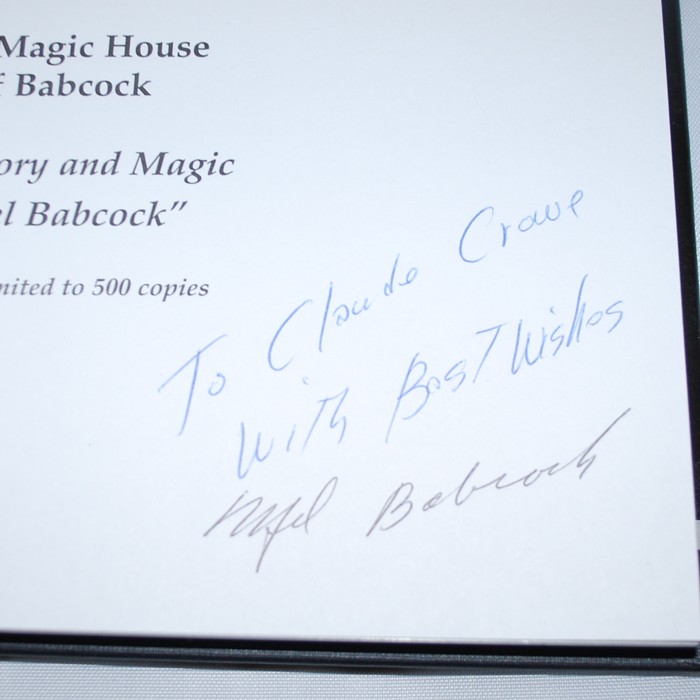 Magic House
f Babcock
ory and Magic
el Babcock”
nited to 500 copies
To Claude Crowe
With Best Wishes
Mel Babcock